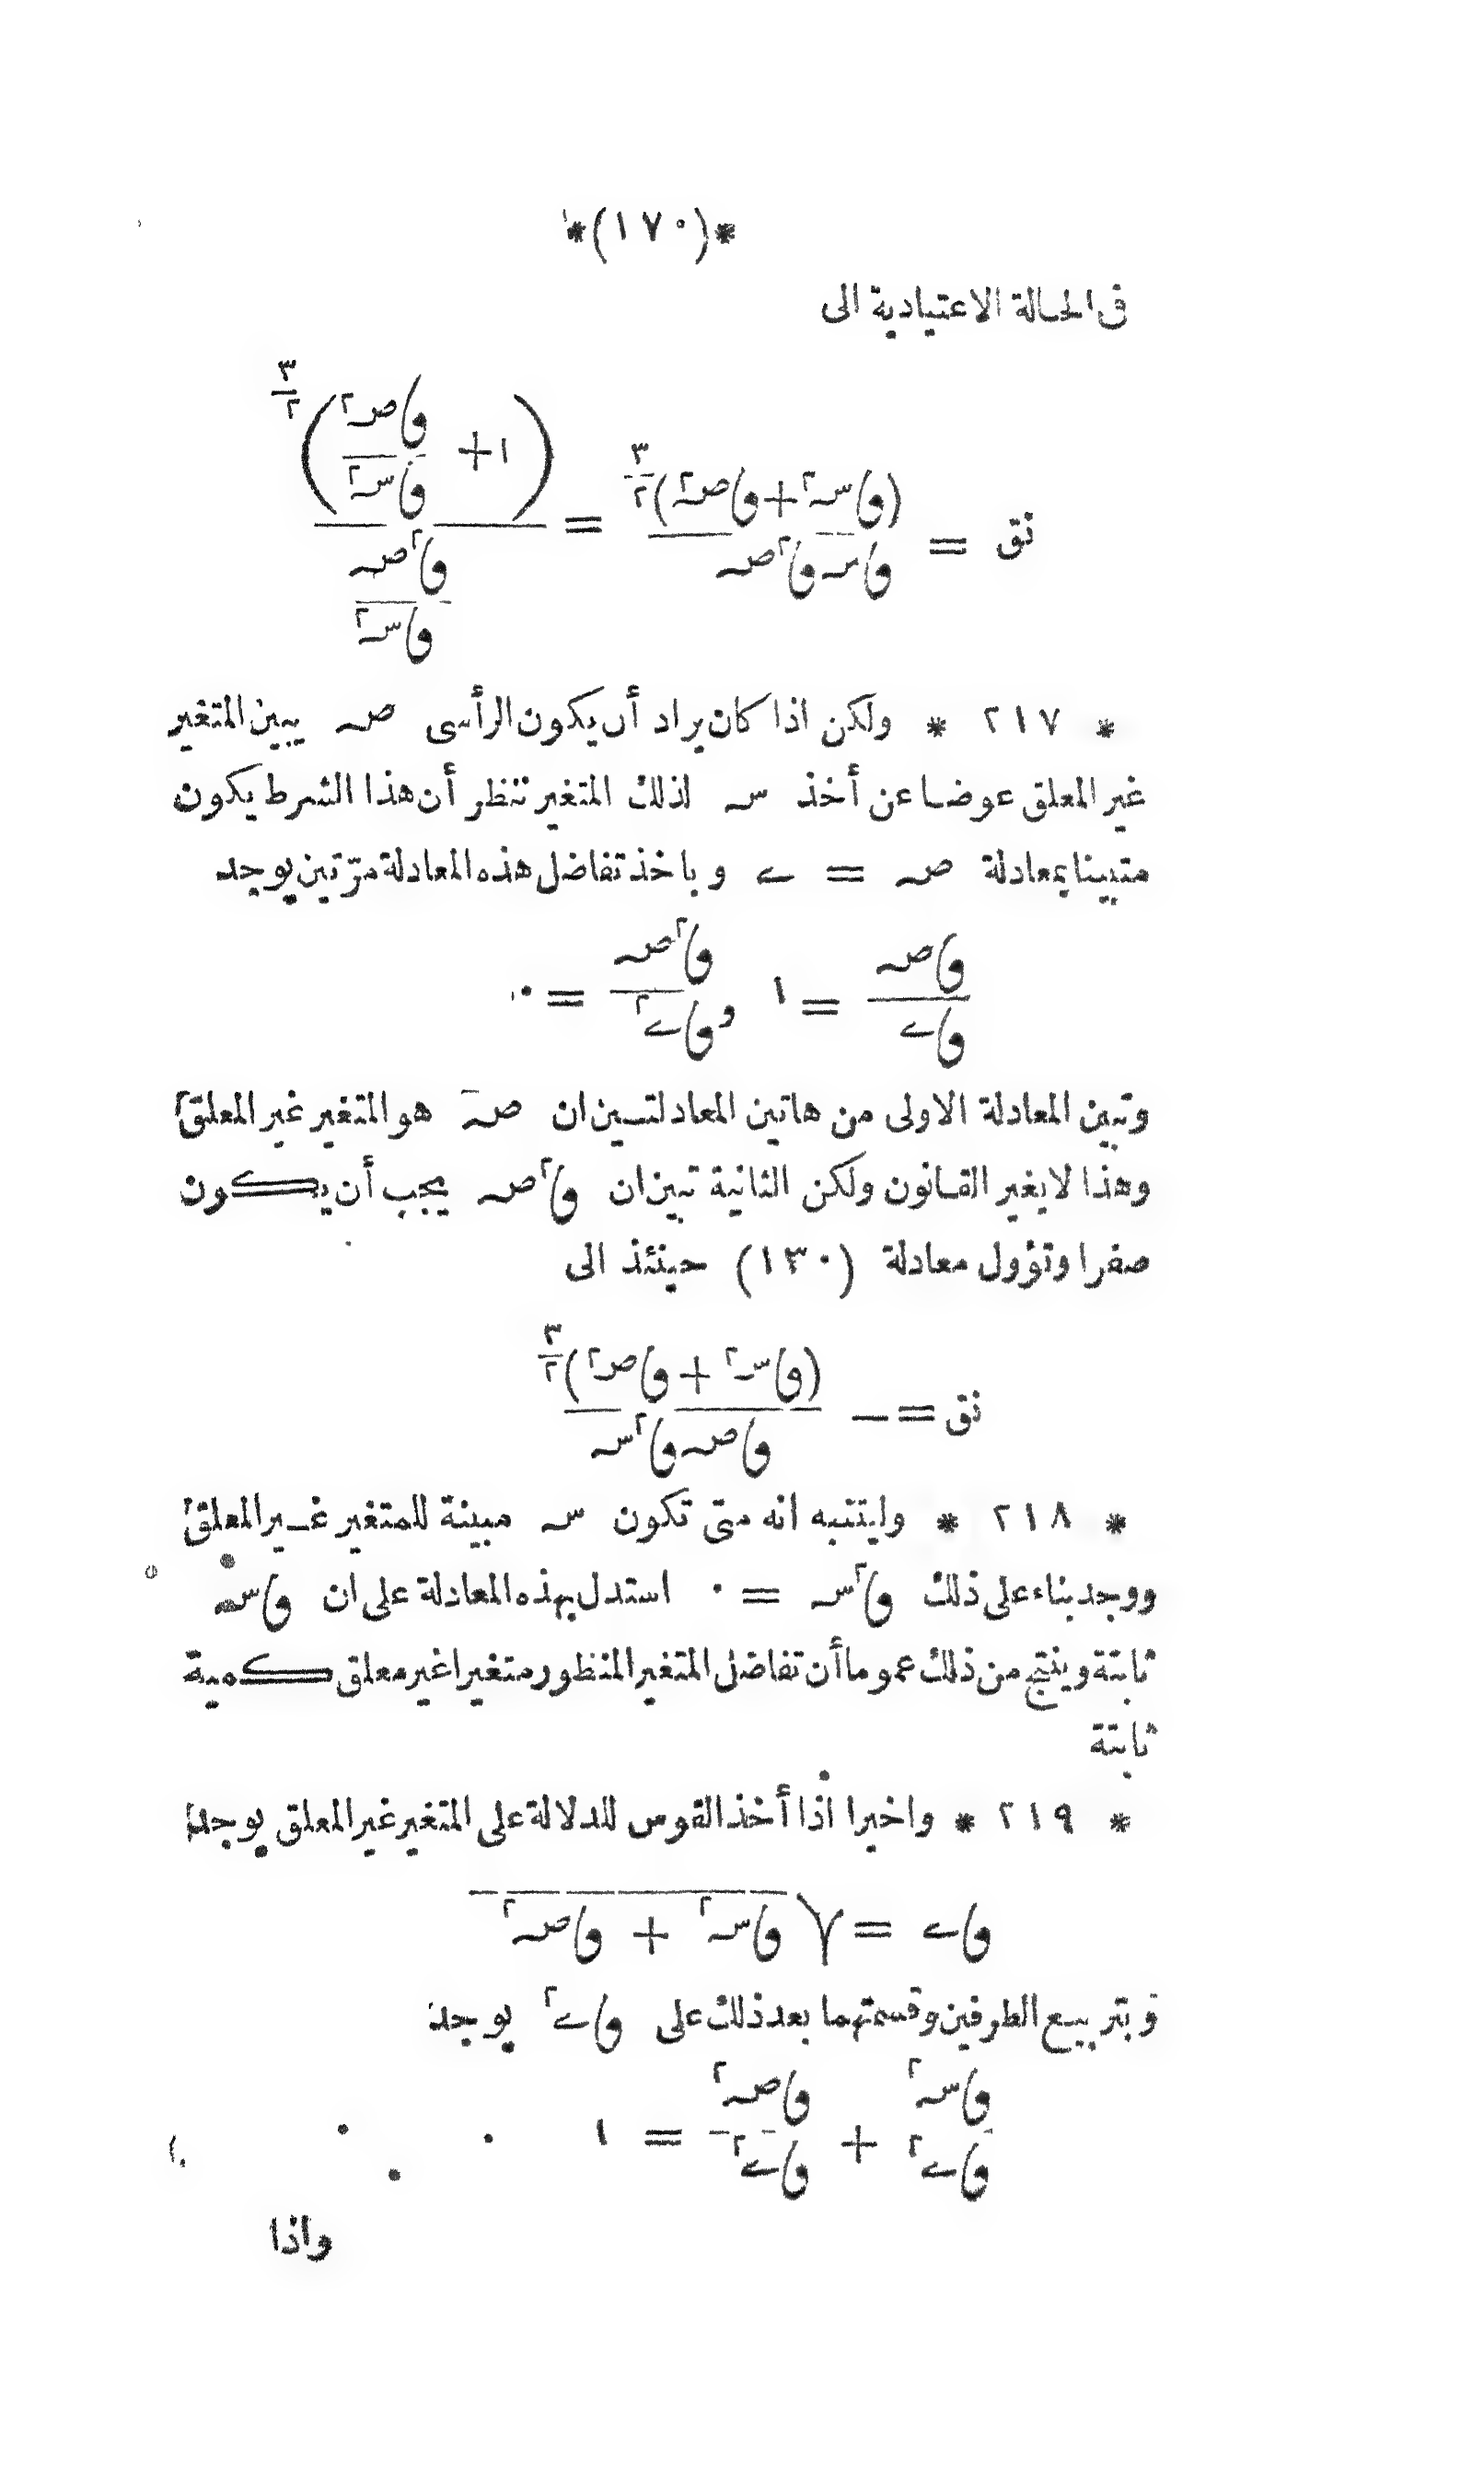 *(١٧٠)*
فى الحالة الاعتيادية الى
نق = (وﺎسہ٢ + وﺎصہ٢)^(٣/٢) / وﺎسہ وﺎ٢صہ = (١ + وﺎصہ٢/وﺎسہ٢)^(٣/٢) / (وﺎ٢صہ/وﺎسہ٢)
* ٢١٧ * ولكن اذا كان يراد أن يكون الرأسى صہ يبين المتغير
غير المعلق عوضا عن أخذ سہ لذلك المتغير ننظر أن هذا الشرط يكون
متبينا بمعادلة صہ = ے وباخذ تفاضل هذه المعادلة مرّتين يوجد
وﺎصہ/وﺎے = ١ و وﺎ٢صہ/وﺎے٢ = ٠
وتبين المعادلة الاولى من هاتين المعادلتين ان صہ هو المتغير غير المعلق
وهذا لا يغير القانون ولكن الثانية تبين ان وﺎ٢صہ يجب أن يكون
صفرا وتؤول معادلة (١٣٠) حينئذ الى
نق = − (وﺎسہ٢ + وﺎصہ٢)^(٣/٢) / وﺎصہ وﺎ٢سہ
* ٢١٨ * وليتنبه انه متى تكون سہ مبينة للمتغير غير المعلق
ووجد بناء على ذلك وﺎ٢سہ = ٠ استدل بهذه المعادلة على ان وﺎسہ
ثابتة وينتج من ذلك عموما أن تفاضل المتغير المنظور متغيرا غير معلق كمية
ثابتة
* ٢١٩ * واخيرا اذا أخذ القوس للدلالة على المتغير غير المعلق يوجد
وﺎے = √(وﺎسہ٢ + وﺎصہ٢)
وبتربيع الطرفين وقسمتهما بعد ذلك على وﺎے٢ يوجد
وﺎسہ٢/وﺎے٢ + وﺎصہ٢/وﺎے٢ = ١
واذا